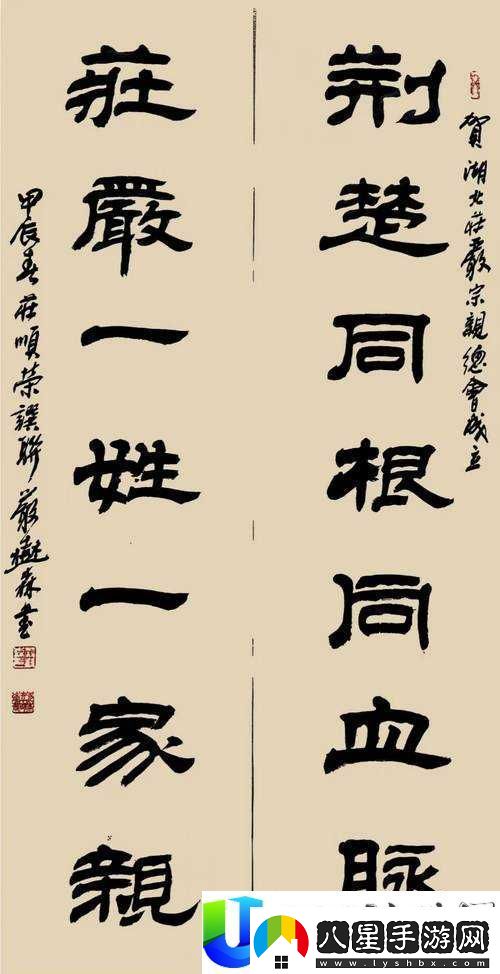 賀湖北莊嚴宗親總會成立
荆楚同根同血脈
莊嚴一姓一家親
甲辰春莊順榮譔聯嚴樾森書
八星手游网
www.lyshbx.com